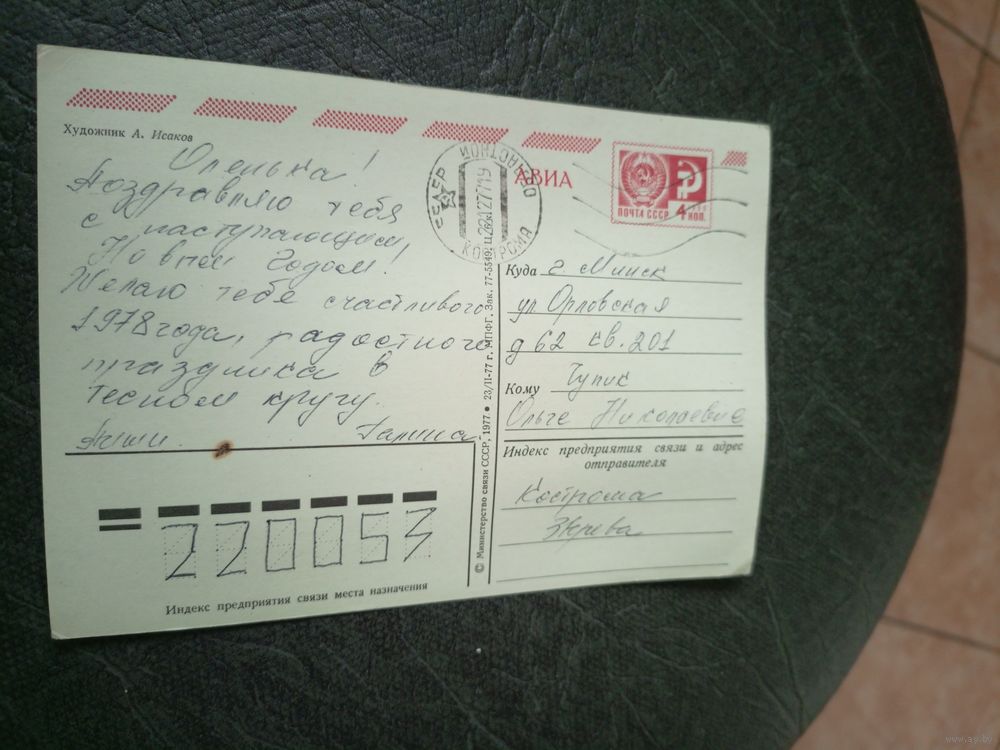 Художник А. Исаков
Оленька!
Поздравляю тебя
с наступающим
Новым Годом!
Желаю тебе счастливого
1978 года, радостного
праздника в
тесном кругу.
Пиши. Галина
АВИА
ПОЧТА СССР
4 КОП.
КОСТРОМА
Куда г. Минск
ул Орловская
д 62 кв. 201
Кому Чупик
Ольге Николаевне
Индекс предприятия связи и адрес
отправителя
Кострома
220053
Индекс предприятия связи места назначения
© Министерство связи СССР, 1977 • 23/II-77 г. МПФГ. Зак. 77-5549.
www.ay.by